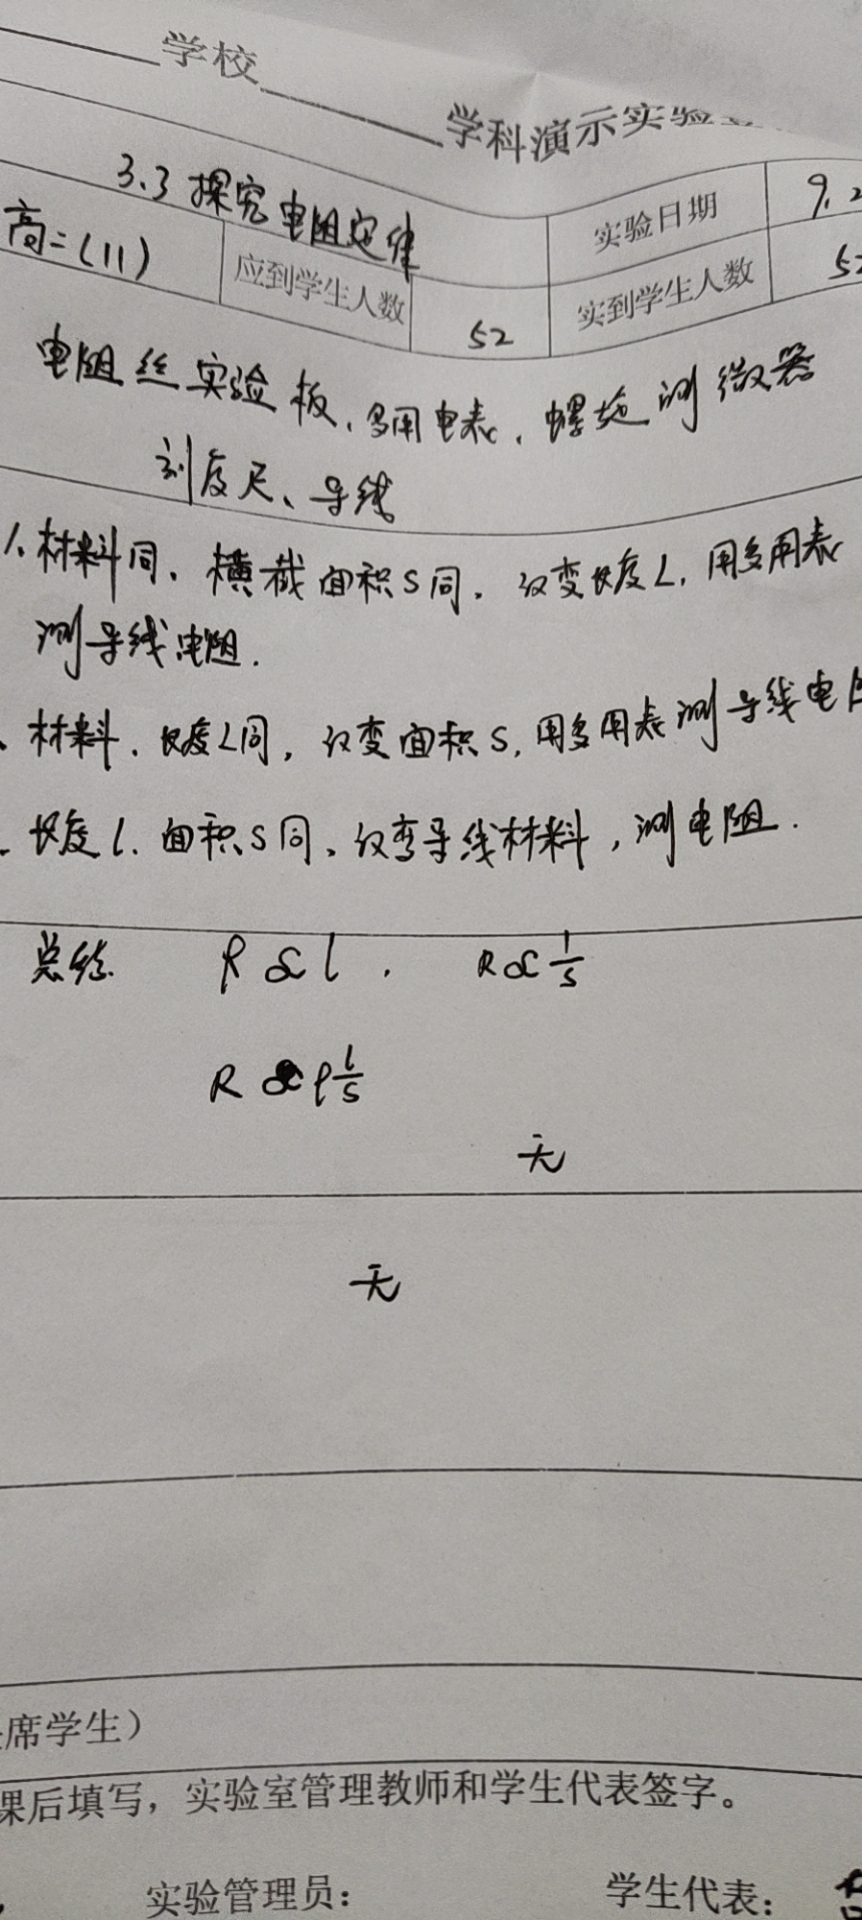 学校
学科演示实验
3.3 探究电阻定律
实验日期
9.2
高二(11)
应到学生人数
52
实到学生人数
52
电阻丝实验板、多用电表、螺旋测微器
刻度尺、导线
1、材料同、横截面积S同、改变长度L,用多用表
测导线电阻.
、材料、长度L同,改变面积S,用多用表测导线电阻
长度l、面积S同、改变导线材料,测电阻.
总结 R∝l . R∝1/S
R∝ρl/S
无
无
席学生)
课后填写,实验室管理教师和学生代表签字。
实验管理员:
学生代表: